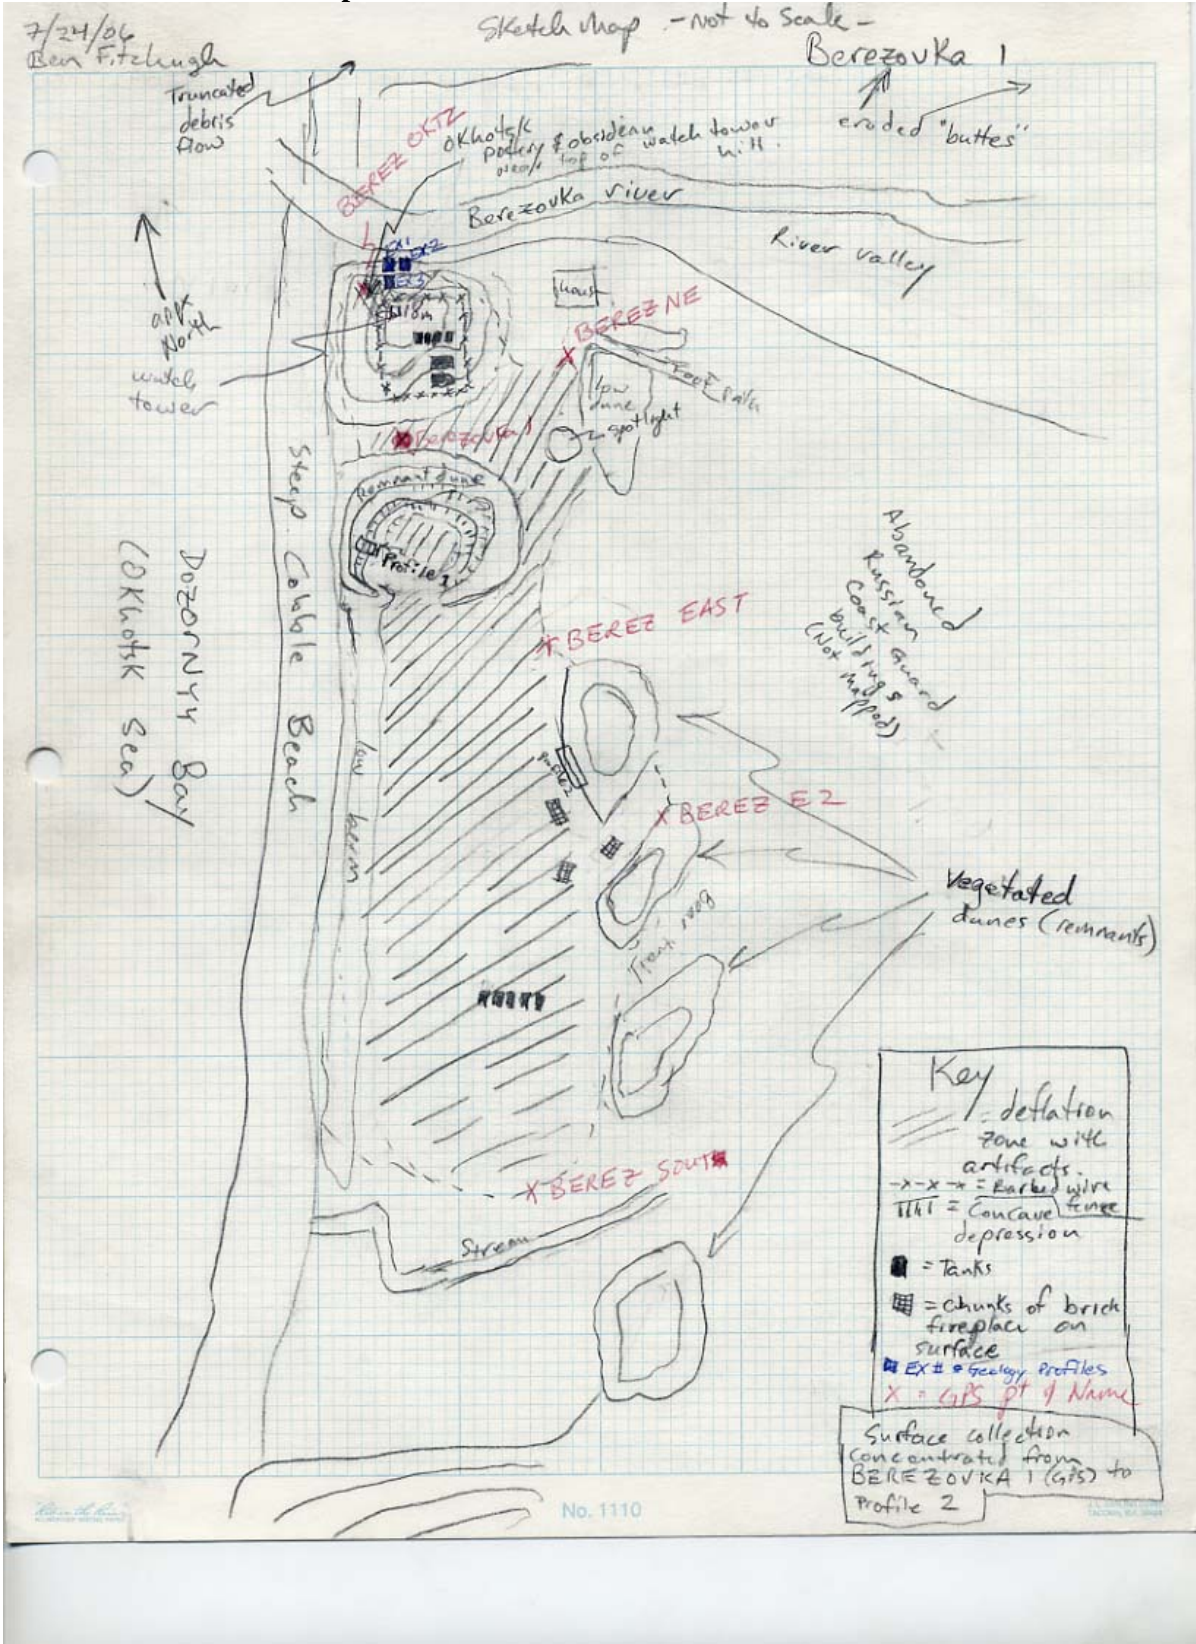 7/24/06
Ben Fitzhugh
Sketch Map - Not to Scale -
Berezovka 1
Truncated
debris
flow
eroded "buttes"
BEREZ OKTZ
Okhotsk
pottery & obsidian
top of watch tower
hill.
Berezovka river
River valley
appx
North
watch
tower
EX1
EX2
EX3
18m
house
BEREZ NE
foot path
low
dune
spotlight
Berezovka 1
remnant dune
Profile 1
Steep Cobble Beach
Dozornyy Bay
(Okhotsk Sea)
low berm
Abandoned
Russian
Coast Guard
buildings
(Not mapped)
BEREZ EAST
profile 2
X BEREZ E2
Vegetated
dunes (remnants)
X BEREZ SOUTH
Stream
Key
= deflation
zone with
artifacts.
-x-x-x = Barbed wire
fence
= Concave
depression
= Tanks
= chunks of brick
fireplace on
surface
EX # = Geology Profiles
X = GPS pt & Name
Surface collection
concentrated from
BEREZOVKA 1 (GPS) to
Profile 2
No. 1110